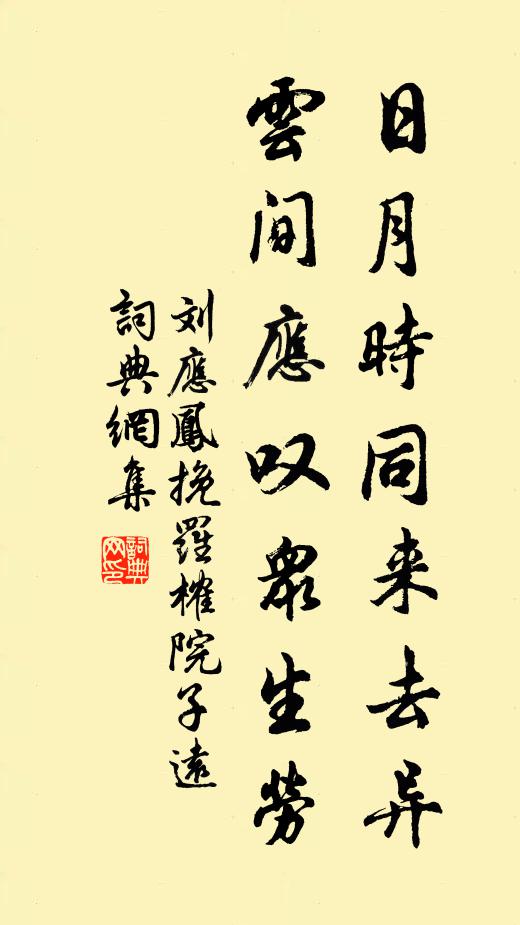 日月時同来去异
雲间應叹眾生勞
刘應鳳挽羅權院子遠
詞典網集
詞典网印